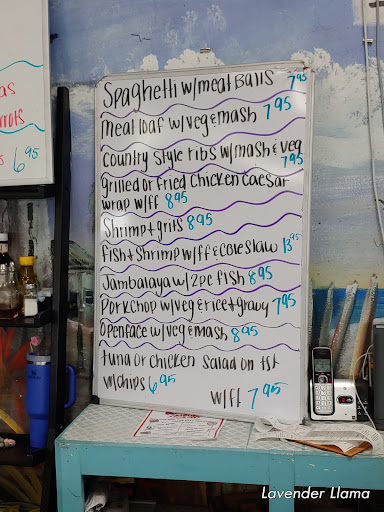 as
rrots
6 95
Spaghetti w/meat Balls 7 95
Meat loaf w/veg & mash 7 95
Country Style ribs w/mash & veg
7 95
Grilled or Fried Chicken Caesar
wrap w/ff 8 95
Shrimp + grits 8 95
fish + Shrimp w/ff & coleslaw 13 95
Jambalaya w/2pc fish 8 95
Porkchop w/veg & rice + gravy 7 95
Openface w/veg & mash 8 95
tuna or Chicken Salad on tst
w/chips 6 95 w/ff 7 95
Lavender Llama